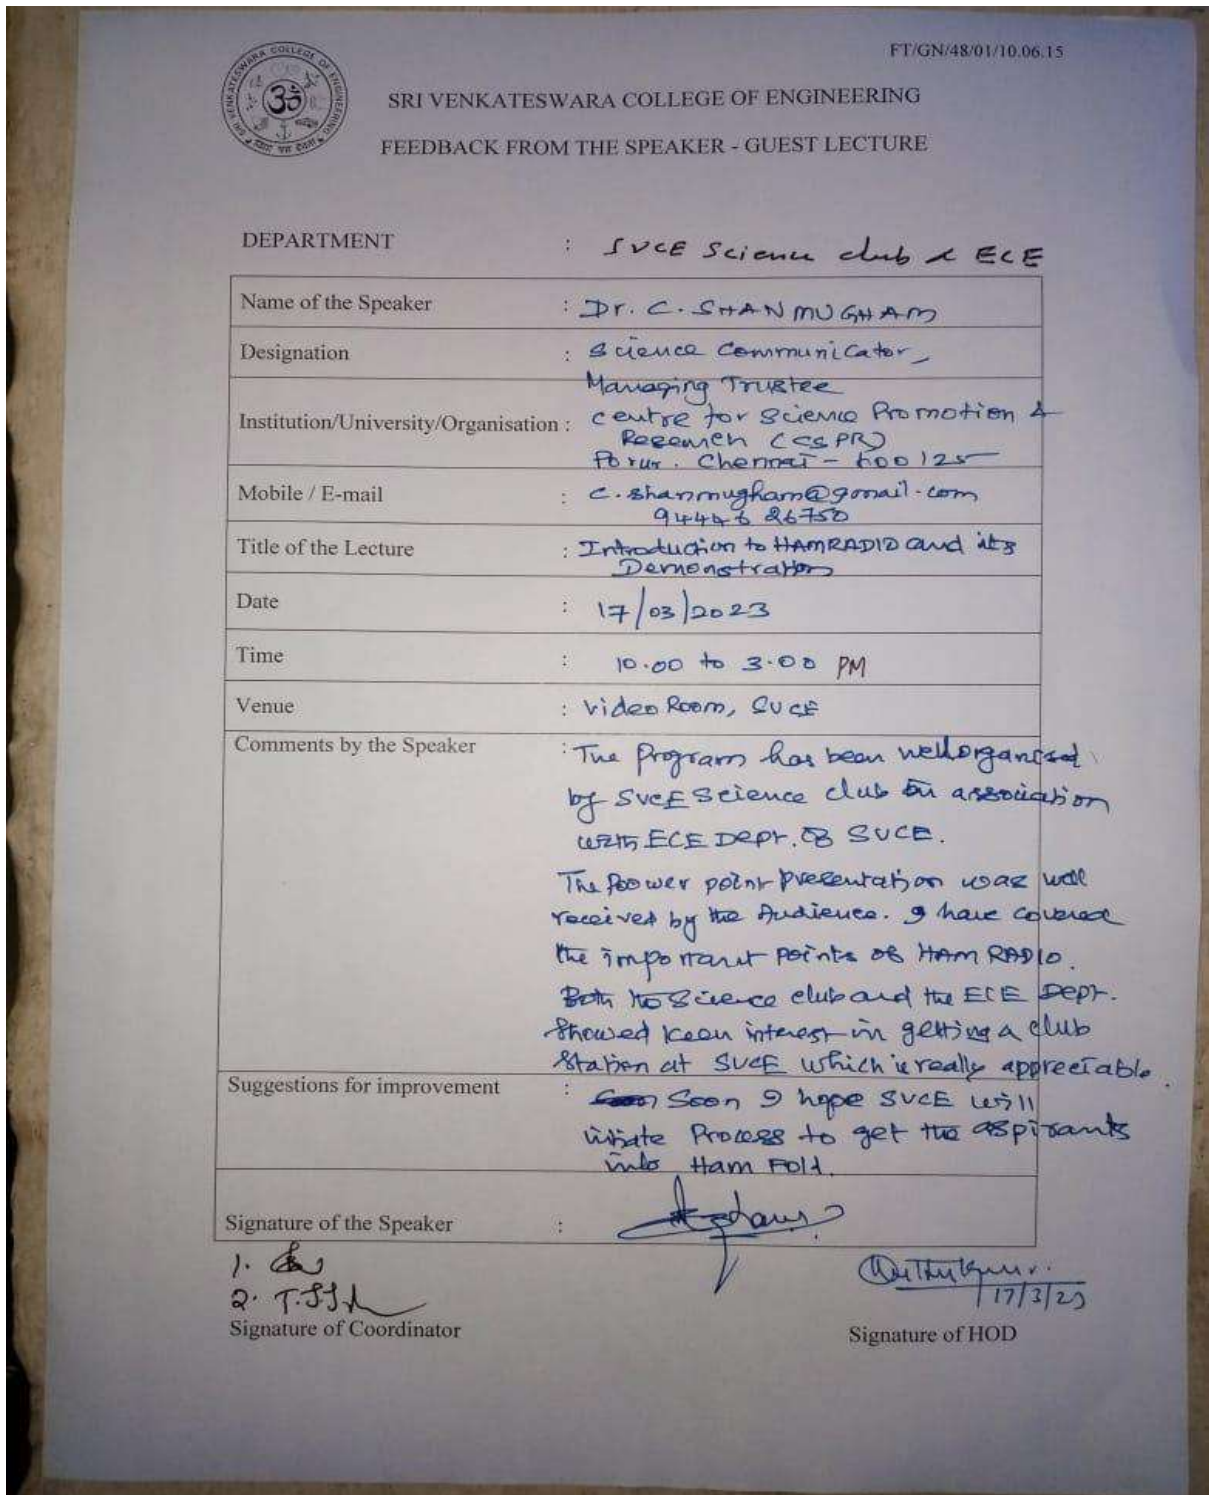 FT/GN/48/01/10.06.15
SRI VENKATESWARA COLLEGE OF ENGINEERING
SRI VENKATESWARA COLLEGE OF ENGINEERING
FEEDBACK FROM THE SPEAKER - GUEST LECTURE
DEPARTMENT : SVCE Science club & ECE
Name of the Speaker : Dr. C. SHANMUGHAM
Designation : Science Communicator,
Managing Trustee
Institution/University/Organisation : Centre for Science Promotion &
Research (CSPR)
Porur. Chennai - 600125
Mobile / E-mail : c.shanmugham@gmail.com
94446 26750
Title of the Lecture : Introduction to HAMRADIO and its
Demonstration
Date : 17/03/2023
Time : 10.00 to 3.00 PM
Venue : Video Room, SVCE
Comments by the Speaker : The Program has been well organised
by SVCE Science club in association
with ECE Dept. of SVCE.
The Poower point presentation was well
received by the Audience. I have covered
the important points of HAM RADIO.
Both the Science club and the ECE Dept.
showed keen interest in getting a club
station at SVCE which is really appreciable.
Suggestions for improvement : Soon I hope SVCE will
initiate Process to get the aspirants
into Ham Fold.
Signature of the Speaker :
1.
2.
17/3/23
Signature of Coordinator
Signature of HOD